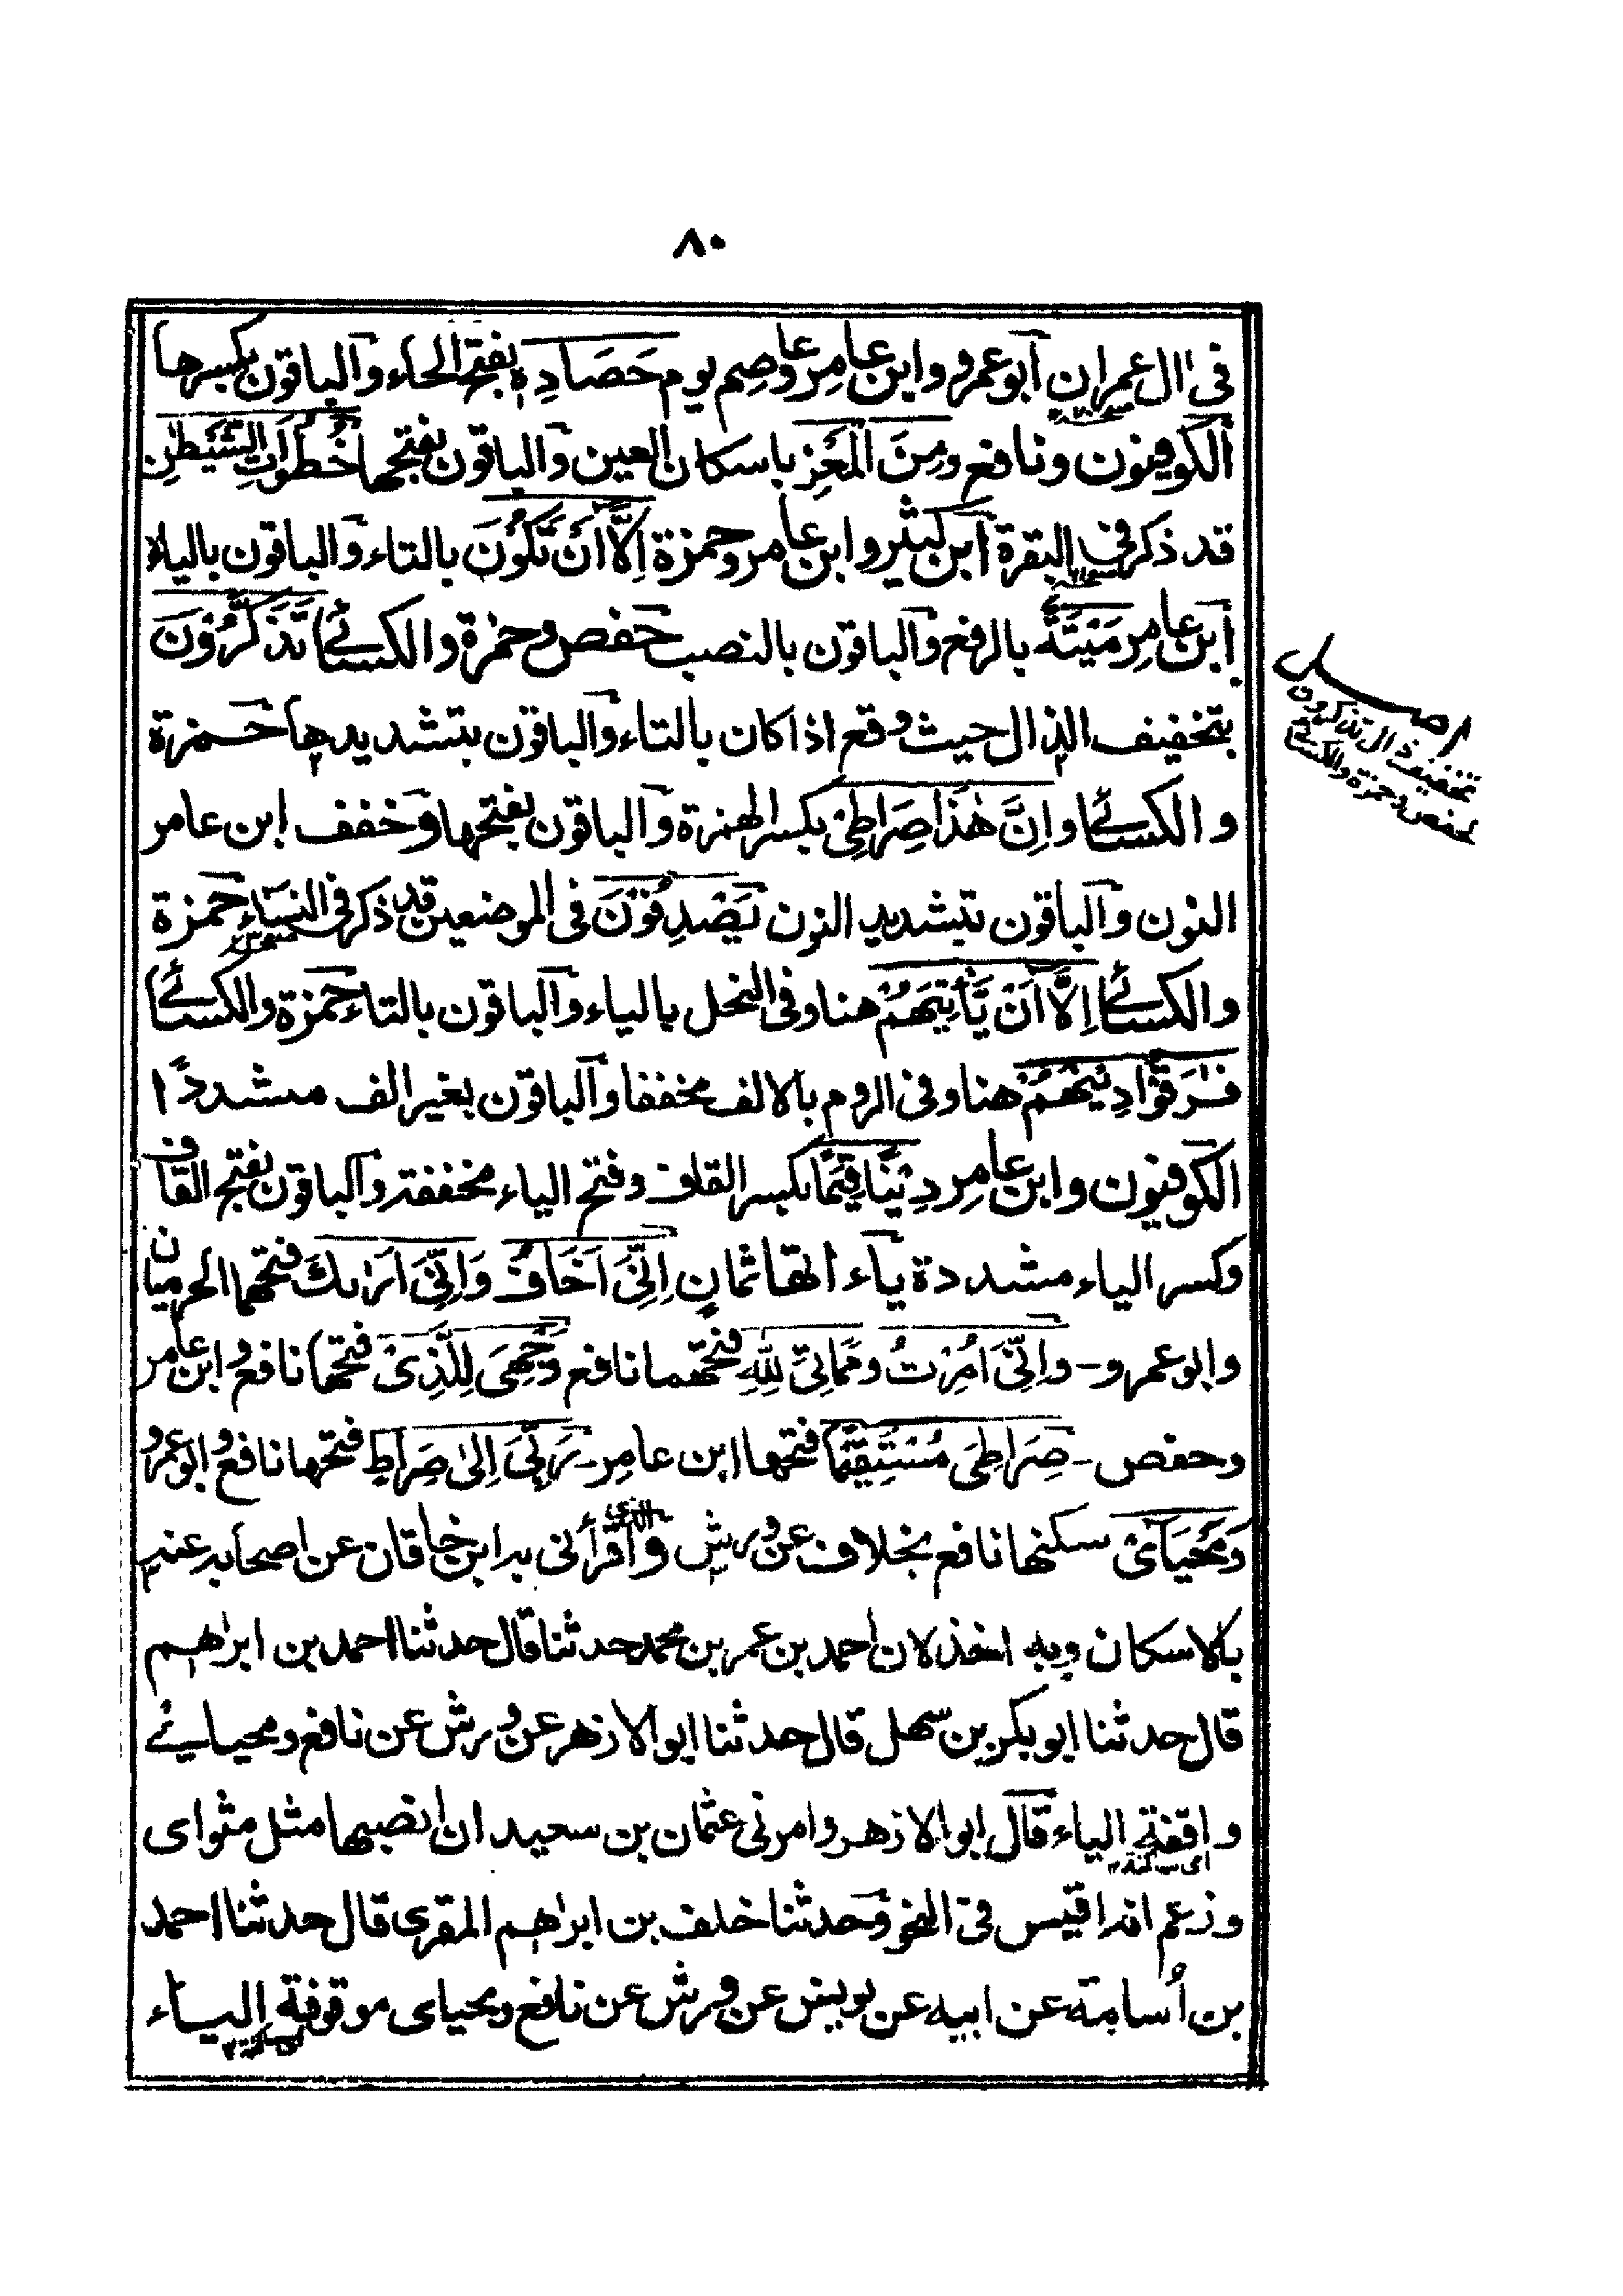 ٨٠
فى اٰل عمران ابو عمرو وابن عامر وعاصم يوم حَصَادِهٖ بفتح الحاء والباقون بكسرها
الكوفيون ونافع ومِنَ الْمَعْزِ باسكان العين والباقون بفتحها خُطُوَاتِ الشَّيْطٰنِ
قد ذكر فى البقرة ابن كثير وابن عامر وحمزة اِلَّا اَنْ تَكُوْنَ بالتاء والباقون بالياء
ابن عامر مَيْتَةٌ بالرفع والباقون بالنصب حفص وحمزة والكسائى تَذَكَّرُوْنَ
بتخفيف الذال حيث وقع اذا كان بالتاء والباقون بتشديدها حمزة
والكسائى وَاِنَّ هٰذَا صِرَاطِىْ بكسر الهمزة والباقون بفتحها وخفف ابن عامر
النون والباقون بتشديد النون يَصْدِفُوْنَ فى الموضعين قد ذكر فى النساء حمزة
والكسائى اِلَّا اَنْ يَّأْتِيَهُمْ هنا وفى النحل بالياء والباقون بالتاء حمزة والكسائى
فٰرَقُوْا دِيْنَهُمْ هنا وفى الروم بالالف مخففا والباقون بغير الف مشددًا
الكوفيون وابن عامر دِيْنًا قِيَمًا بكسر القاف وفتح الياء مخففة والباقون بفتح القاف
وكسر الياء مشددة ياء اتها ثمانٍ اِنِّىْ اَخَافُ وَاِنِّىْ اَرٰىكَ فتحهما الحرميان
وابو عمرو - وَاِنِّىْ اُمِرْتُ وَمَمَاتِىْ لِلّٰهِ فتحهما نافع وَجْهِىَ لِلَّذِىْ فتحها نافع وابن عامر
وحفص - صِرَاطِىْ مُسْتَقِيْمًا فتحها ابن عامر - رَبِّىْ اِلٰى صِرَاطٍ فتحها نافع وابو عمرو
وَمَحْيَاىْ سكنها نافع بخلاف عن ورش والذى اقرأنى به ابن خاقان عن اصحابه عنه
بالاسكان وبه اخذ لان احمد بن عمر بن محمد حدثنا قال حدثنا احمد بن ابراهيم
قال حدثنا ابو بكر بن سهل قال حدثنا ابو الازهر عن ورش عن نافع ومحياى
واقفة الياء قال ابو الازهر وامرنى عثمان بن سعيد ان انصبها مثل مثواى
وزعم انه اقيس فى النحو وحدثنا خلف بن ابراهيم المقرى قال حدثنا احمد
بن اُسامة عن ابيه عن يونس عن ورش عن نافع ومحياى موقوفة الياء
اصل
تخفيف ذال تذكرون
لحفص وحمزة والكسائى